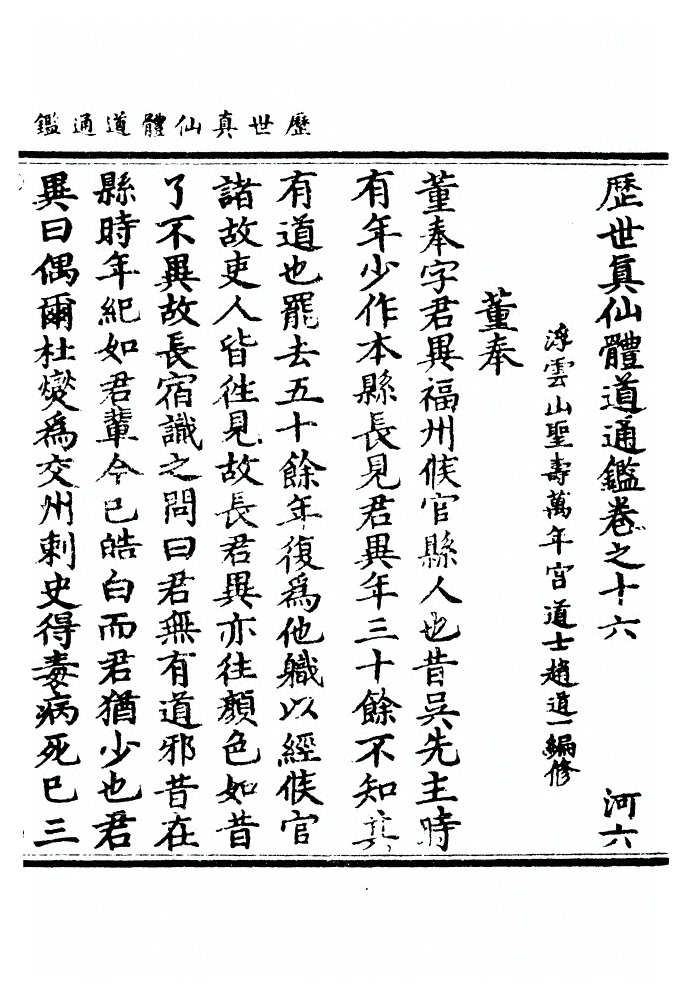 歷世真仙體道通鑑
歷世眞仙體道通鑑卷之十六 河六
浮雲山聖壽萬年宮道士趙道一編修
董奉
董奉字君異福州候官縣人也昔吳先主時
有年少作本縣長見君異年三十餘不知其
有道也罷去五十餘年復爲他職以經候官
諸故吏人皆徃見故長君異亦往顏色如昔
了不異故長宿識之問曰君無有道邪昔在
縣時年紀如君輩今已皓白而君猶少也君
異曰偶爾杜燮爲交州刺史得毒病死已三